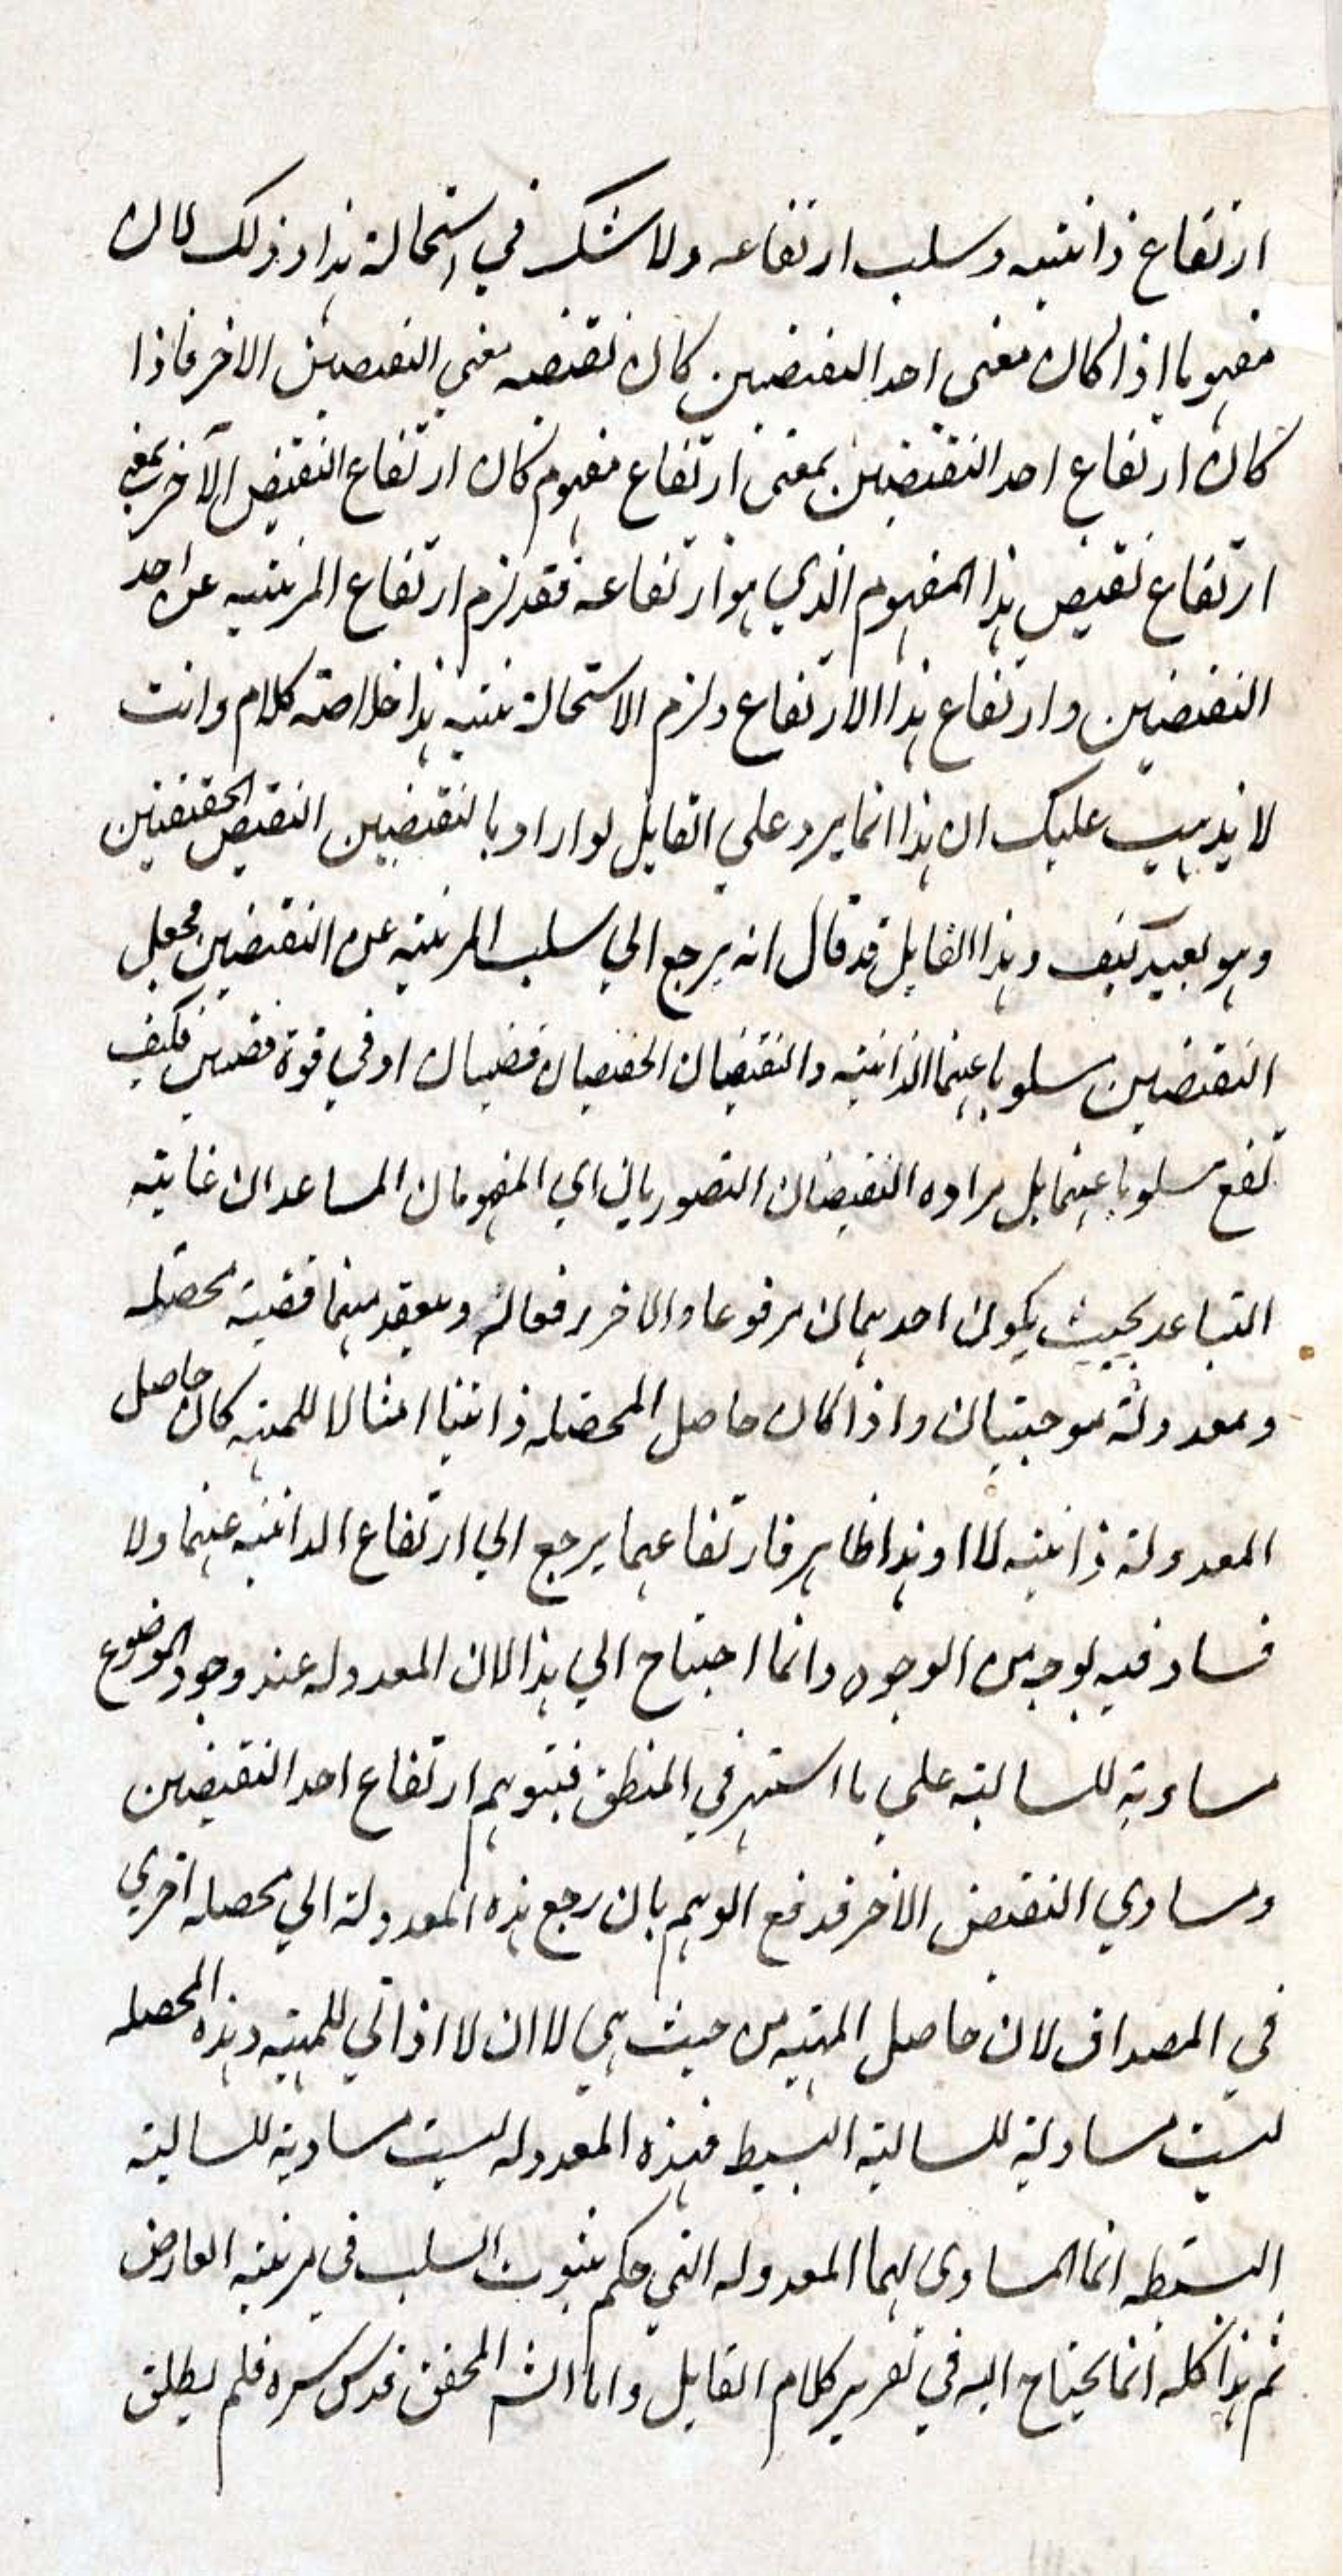 ارتفاع ذاتيته وسلب ارتفاعه ولا شك في استحالة هذا وذلك لان
مفهوما اذا كان معنى احد النقيضين كان نقيضه معنى النقيض الاخر فاذا
كان ارتفاع احد النقيضين بمعنى ارتفاع مفهوم كان ارتفاع النقيض الآخر بمعنى
ارتفاع نقيض هذا المفهوم الذي هو ارتفاعه فقد لزم ارتفاع المرتبة عن احد
النقيضين وارتفاع هذا الارتفاع ولزم الاستحالة هذا خلاصة كلام وانت
لا يذهب عليك ان هذا انما يرد على القايل لو اراد بالنقيضين النقيض الحقيقيين
وهو بعيد كيف وهذا القايل قد قال انه يرجع الي سلب المرتبة عن النقيضين فجعل
النقيضين مسلوبا عنهما الذاتية والنقيضان الحقيقيان قضيتان او في قوة قضيتين فكيف
تقع مسلوبا عنهما بل مراده النقيضان التصوريان اي المفهومان المتباعدان غاية
التباعد بحيث يكون احدهما مرفوعا والاخر رفعا له وينعقد منهما قضية محصلة
ومعدولة موجبتان واذا كان حاصل المحصله ذاتية للمهية كان حاصل
المعدولة ذاتية لا ا وهذا ظاهر فارتفاعهما يرجع الي ارتفاع الذاتية عنهما ولا
فساد فيه بوجه من الوجوه وانما احتاج الي هذا لان المعدوله عند وجود الموضوع
مساوية للسالبة على ما اشتهر في المنطق فيتوهم ارتفاع احد النقيضين
ومساوي النقيض الاخر فدفع الوهم بان رجع هذه المعدولة الي محصله اخرى
في المصداق لان حاصل المهية من حيث هي لا ا ان لا ا ذاتي للمهية وهذه المحصله
ليست مساوية للسالبة البسيط فهذه المعدوله ليست مساوية للسالبة
البسيطه انما المساوى لهما المعدوله التي حكم بثبوت السلب في مرتبة العارض
ثم هذا كله انما يحتاج اليه في تقرير كلام القايل واما الشه المحقق قدس سره فلم يطلق